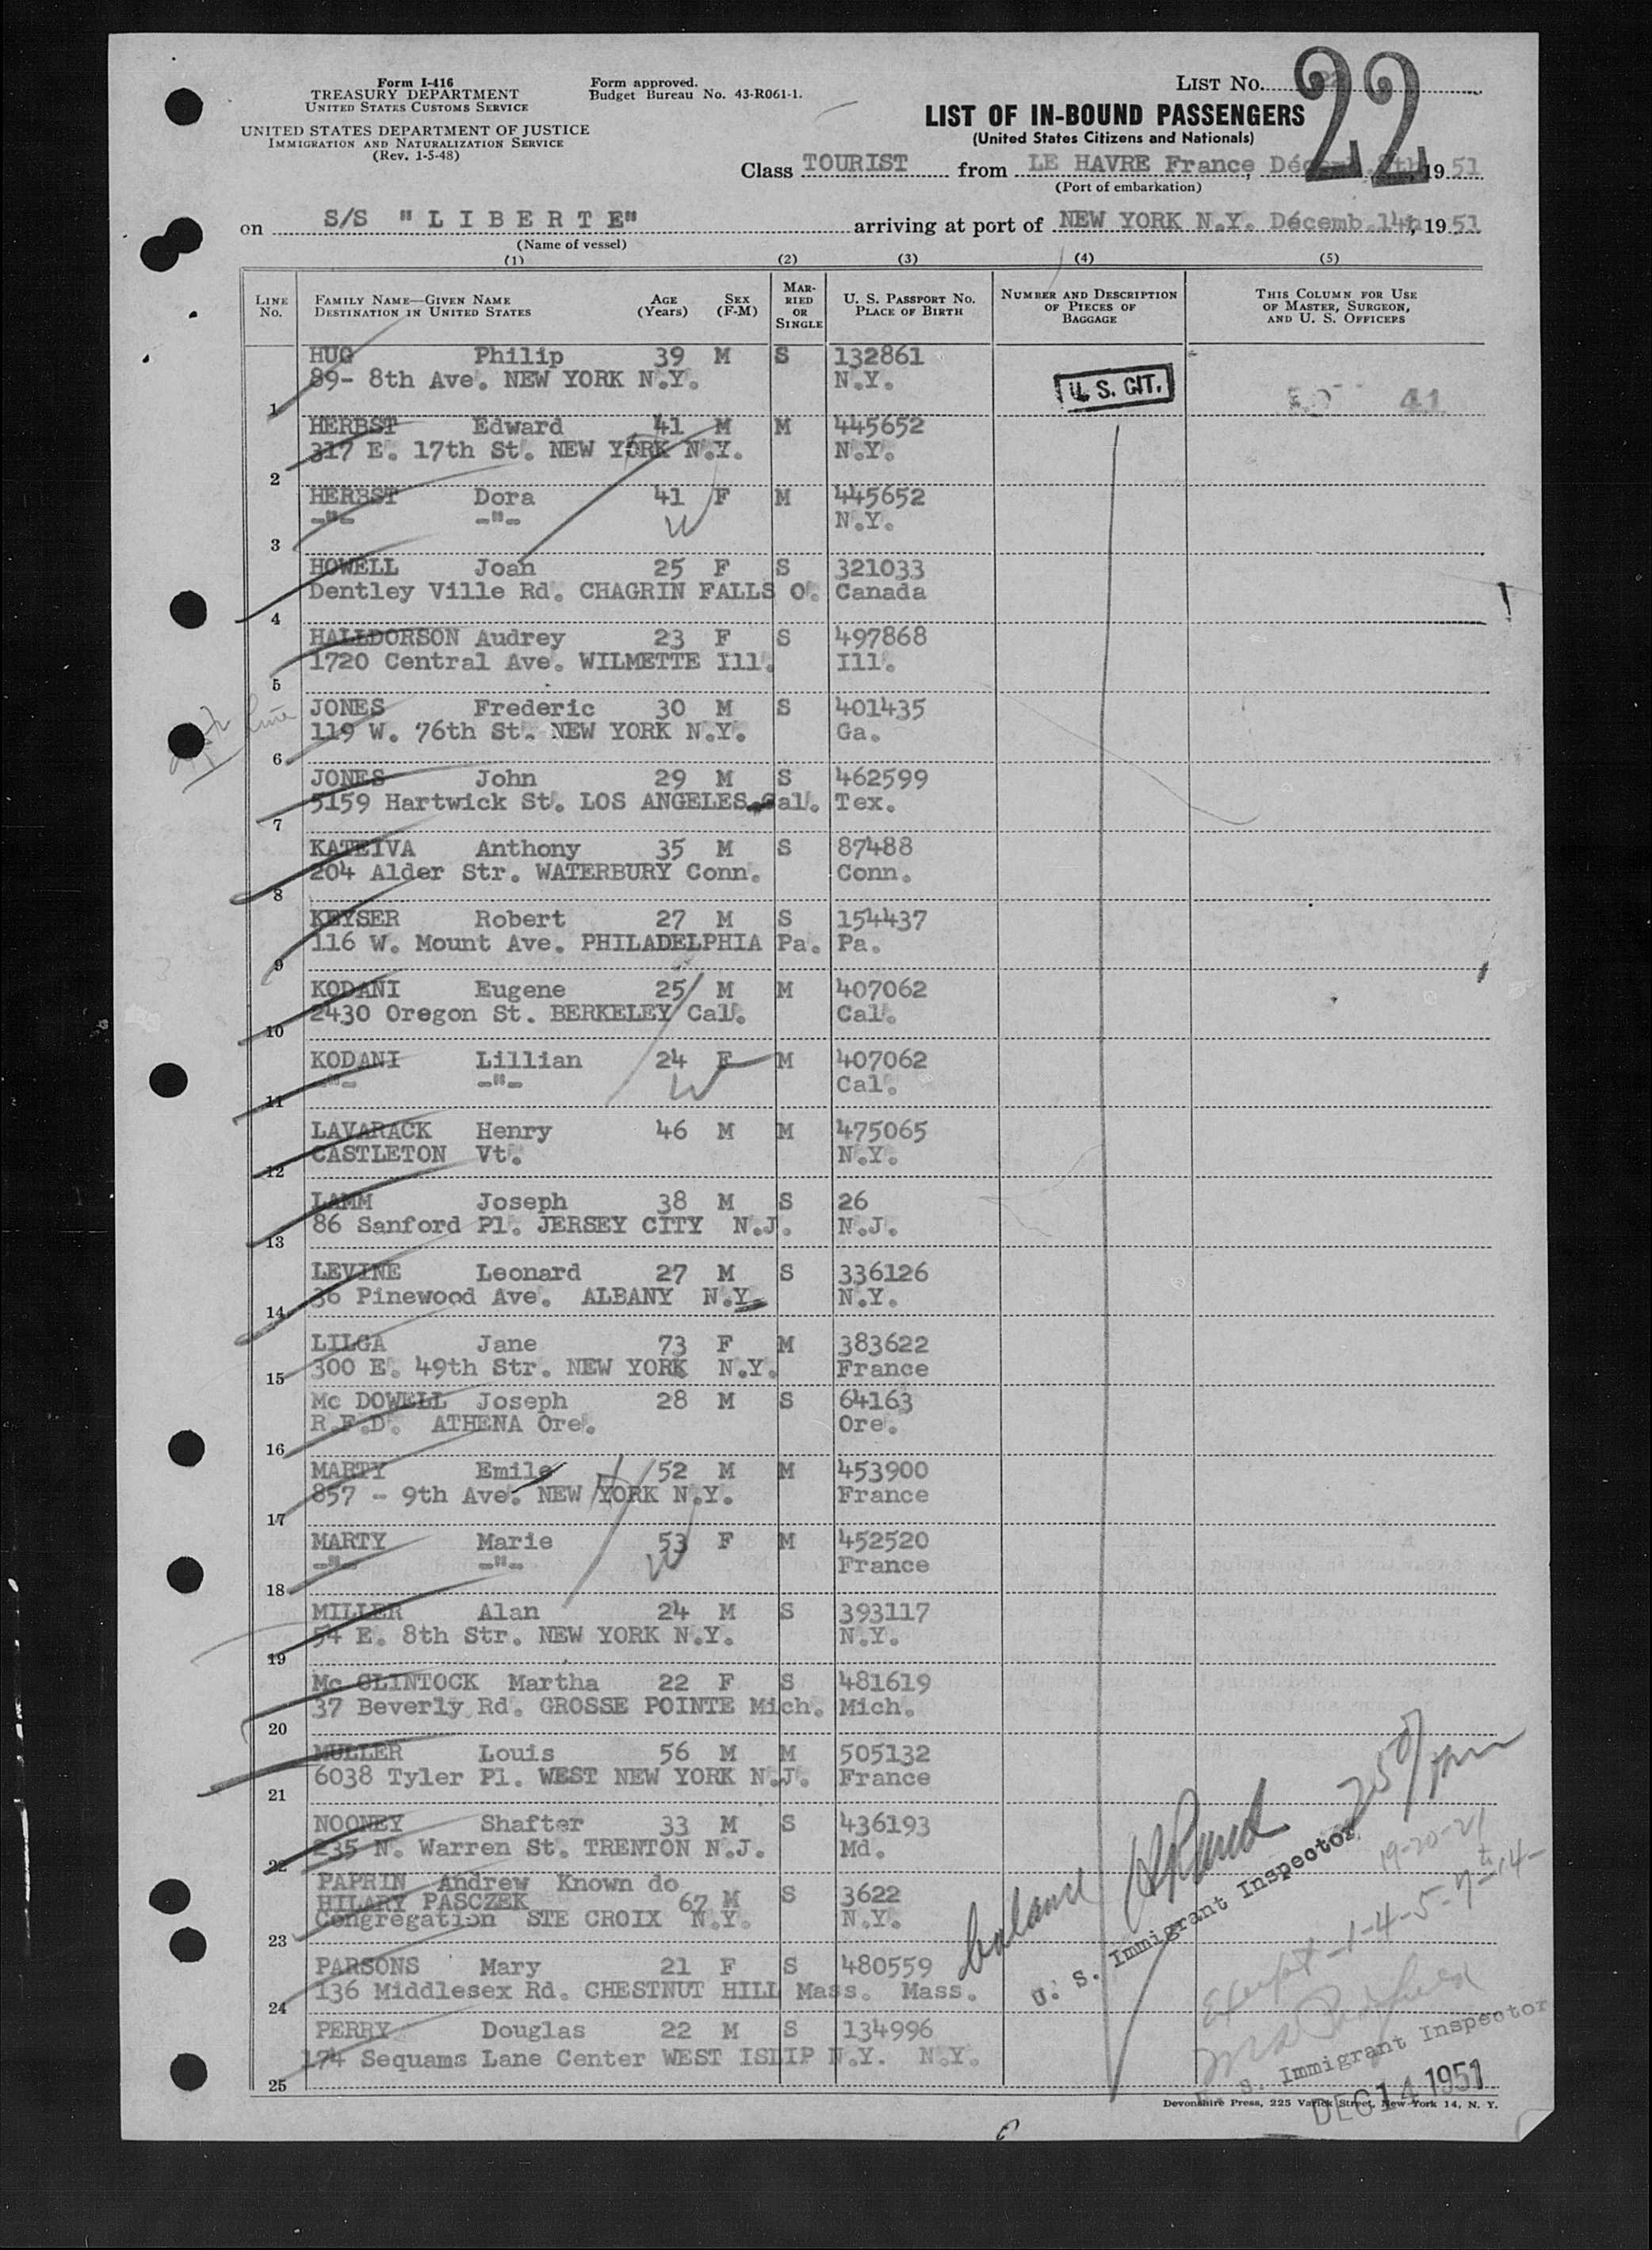 Form I-416
TREASURY DEPARTMENT
UNITED STATES CUSTOMS SERVICE
UNITED STATES DEPARTMENT OF JUSTICE
IMMIGRATION AND NATURALIZATION SERVICE
(Rev. 1-5-48)
Form approved.
Budget Bureau No. 43-R061-1.
LIST No. 22
LIST OF IN-BOUND PASSENGERS
(United States Citizens and Nationals)
Class TOURIST from LE HAVRE France, 1951
(Port of embarkation)
on S/S "LIBERTE" arriving at port of NEW YORK N.Y. Décemb. 14th, 1951
(Name of vessel)
(1) (2) (3) (4) (5)
LINE No. FAMILY NAME—GIVEN NAME DESTINATION IN UNITED STATES AGE (Years) SEX (F-M) MARRIED OR SINGLE U. S. PASSPORT NO. PLACE OF BIRTH NUMBER AND DESCRIPTION OF PIECES OF BAGGAGE THIS COLUMN FOR USE OF MASTER, SURGEON, AND U. S. OFFICERS
HUG Philip 39 M S 132861
89- 8th Ave. NEW YORK N.Y. N.Y. U. S. CIT. 41
1
HERBST Edward 41 M M 445652
317 E. 17th St. NEW YORK N.Y. N.Y.
2
HERBST Dora 41 F M 445652
-"- -"- W N.Y.
3
HOWELL Joan 25 F S 321033
Dentley Ville Rd. CHAGRIN FALLS O. Canada
4
HALLDORSON Audrey 23 F S 497868
1720 Central Ave. WILMETTE Ill. Ill.
5
JONES Frederic 30 M S 401435
119 W. 76th St. NEW YORK N.Y. Ga.
6
JONES John 29 M S 462599
5159 Hartwick St. LOS ANGELES Cal. Tex.
7
KATEIVA Anthony 35 M S 87488
204 Alder Str. WATERBURY Conn. Conn.
8
KEYSER Robert 27 M S 154437
116 W. Mount Ave. PHILADELPHIA Pa. Pa.
9
KODANI Eugene 25 M M 407062
2430 Oregon St. BERKELEY Cal. Cal.
10
KODANI Lillian 24 F M 407062
-"- -"- W Cal.
11
LAVARACK Henry 46 M M 475065
CASTLETON Vt. N.Y.
12
LAMM Joseph 38 M S 26
86 Sanford Pl. JERSEY CITY N.J. N.J.
13
LEVINE Leonard 27 M S 336126
36 Pinewood Ave. ALBANY N.Y. N.Y.
14
LILGA Jane 73 F M 383622
300 E. 49th Str. NEW YORK N.Y. France
15
Mc DOWELL Joseph 28 M S 64163
R.F.D. ATHENA Ore. Ore.
16
MARTY Emile 52 M M 453900
857 - 9th Ave. NEW YORK N.Y. France
17
MARTY Marie 53 F M 452520
-"- -"- W France
18
MILLER Alan 24 M S 393117
54 E. 8th Str. NEW YORK N.Y. N.Y.
19
Mc CLINTOCK Martha 22 F S 481619
37 Beverly Rd. GROSSE POINTE Mich. Mich.
20
MULLER Louis 56 M M 505132
6038 Tyler Pl. WEST NEW YORK N.J. France
21
NOONEY Shafter 33 M S 436193
235 N. Warren St. TRENTON N.J. Md.
22
PAPRIN Andrew Known do
HILARY PASCZEK 67 M S 3622
Congregation STE CROIX N.Y. N.Y.
23
PARSONS Mary 21 F S 480559
136 Middlesex Rd. CHESTNUT HILL Mass. Mass.
24
PERRY Douglas 22 M S 134996
174 Sequams Lane Center WEST ISLIP N.Y. N.Y.
25
balance
U. S. Immigrant Inspector
19-20-21
Except -1-4-5-7-14-
U. S. Immigrant Inspector
DEC 14 1951
Devonshire Press, 225 Varick Street, New York 14, N. Y.